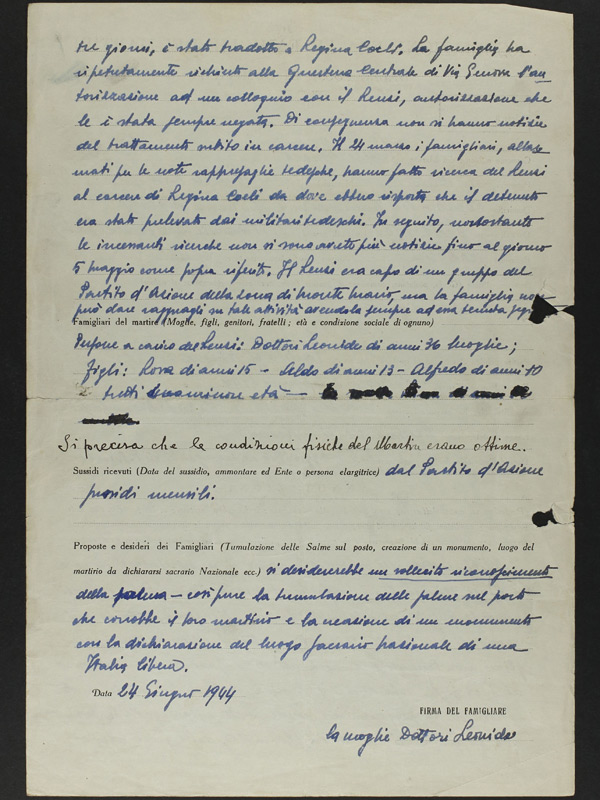 tre giorni, è stato tradotto a Regina Coeli. La famiglia ha
ripetutamente richiesto alla Questura Centrale di Via Genova l'au
torizzazione ad un colloquio con il Rensi, autorizzazione che
le è stata sempre negata. Di conseguenza non si hanno notizie
del trattamento subito in carcere. Il 24 marzo i famigliari, allar
mati per le note rappresaglie tedesche, hanno fatto ricerca del Rensi
al carcere di Regina Coeli da dove ebbero risposta che il detenuto
era stato prelevato dai militari tedeschi. In seguito, nonostante
le incessanti ricerche non si sono avute più notizie fino al giorno
5 maggio come sopra riferito. Il Rensi era capo di un gruppo del
Partito d'Azione della zona di Monte Mario, ma la famiglia non
può dare ragguagli su tale attività avendola sempre ad essa tenuta
Famigliari del martire (Moglie, figli, genitori, fratelli; età e condizione sociale di ognuno)
Persone a carico del Rensi: Dottori Leonilde di anni 36 moglie;
figli: Rosa di anni 15 - Aldo di anni 13 - Alfredo di anni 10
tutti minore età -
Si precisa che le condizioni fisiche del Martire erano ottime.
Sussidi ricevuti (Data del sussidio, ammontare ed Ente o persona elargitrice) dal Partito d'Azione
sussidi mensili.
Proposte e desideri dei Famigliari (Tumulazione delle Salme sul posto, creazione di un monumento, luogo del
martirio da dichiararsi sacrario Nazionale ecc.) si desidererebbe un sollecito riconoscimento
della salma - così pure la tumulazione delle salme sul posto
che conobbe il loro martirio e la creazione di un monumento
con la dichiarazione del luogo sacrario nazionale di una
Italia libera.
Data 24 Giugno 1944
FIRMA DEL FAMIGLIARE
la moglie Dottori Leonilde